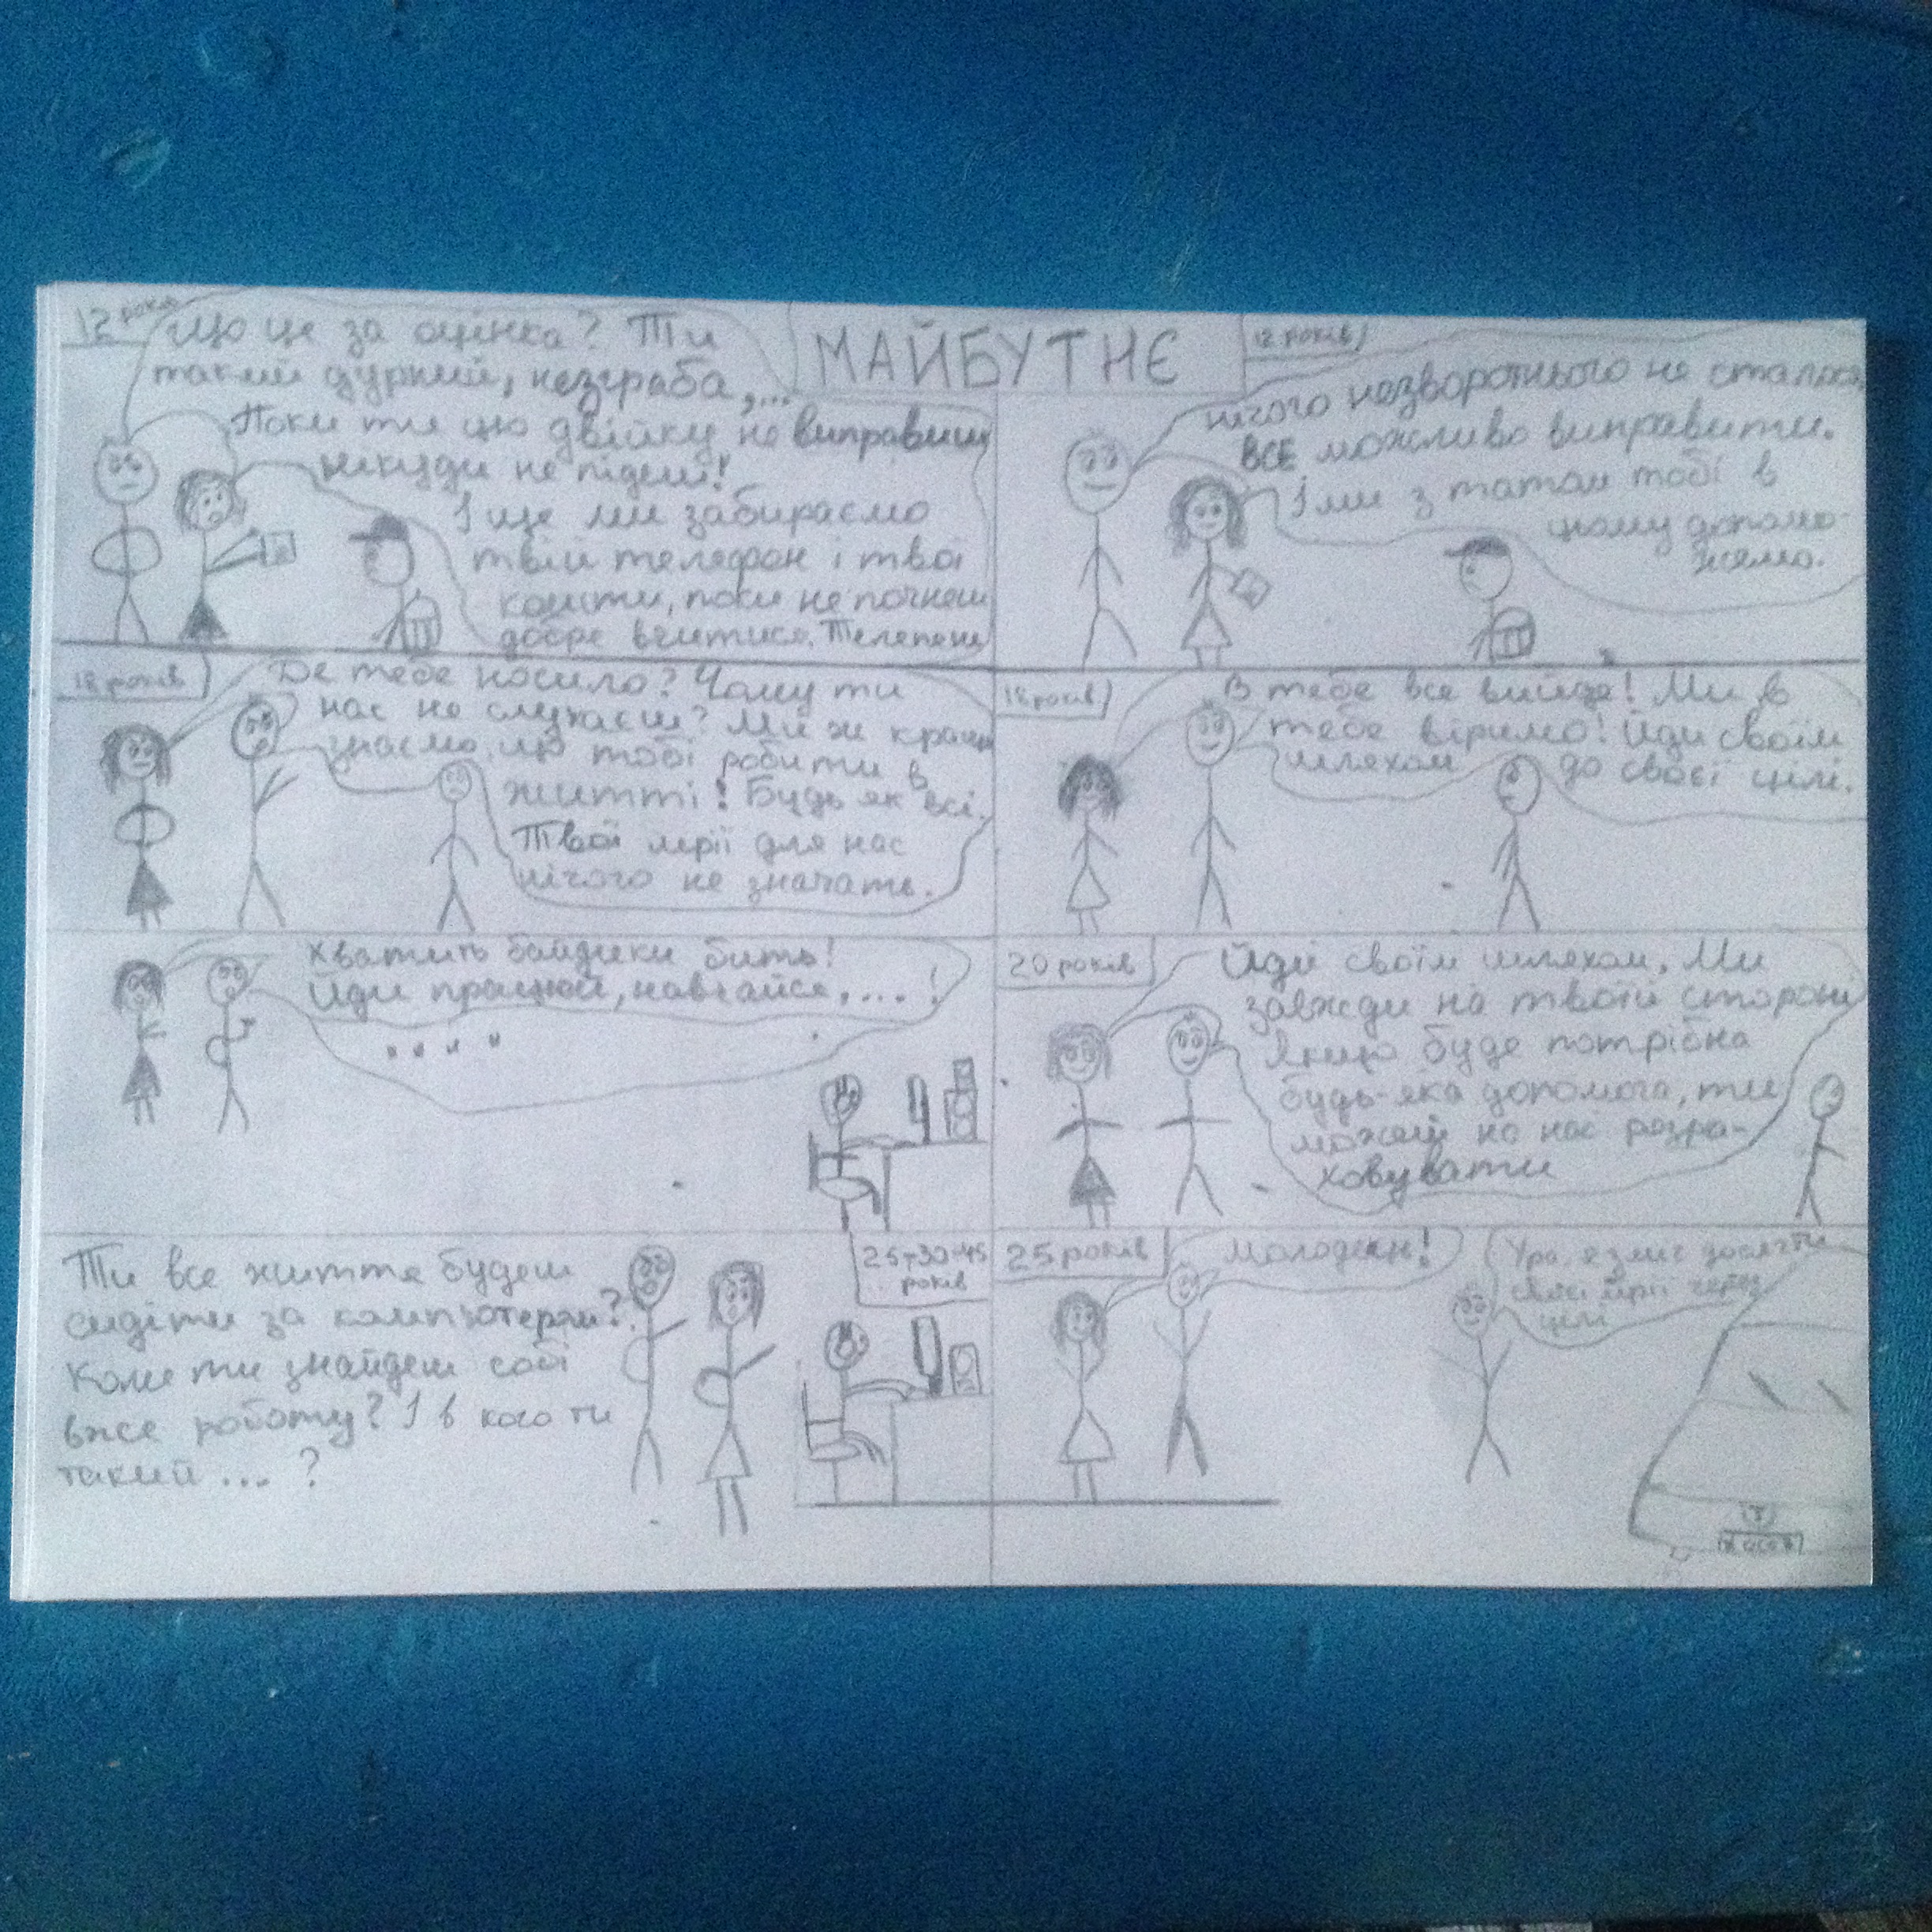 МАЙБУТНЄ
12 років
Що це за оцінка? Ти
такий дурний, незграба,...
Поки ти цю двійку не виправиш
нікуди не підеш!
І ще ми забираємо
твій телефон і твої
кошти, поки не почнеш
добре вчитися. Телепень
12 років
нічого незворотнього не сталося,
ВСЕ можливо виправити.
І ми з татом тобі в
цьому допомо-
жемо.
18 років
Де тебе носило? Чому ти
нас не слухаєш? Ми ж краще
знаємо, що тобі робити в
житті! Будь як всі.
Твої мрії для нас
нічого не значать.
18 років
В тебе все вийде! Ми в
тебе віримо! Йди своїм
шляхом до своєї цілі.
Хватить байдики бить!
Йди працюй, навчайся,...!
20 років
Йди своїм шляхом. Ми
завжди на твоїй стороні
Якщо буде потрібна
будь-яка допомога, ти
можеш на нас розра-
ховувати
Ти все життя будеш
сидіти за компютером?
Коли ти знайдеш собі
вже роботу? І в кого ти
такий ... ?
25→30-45
років
25 років
Молодець!
Ура, я зміг досягти
своєї мрії через
цілі